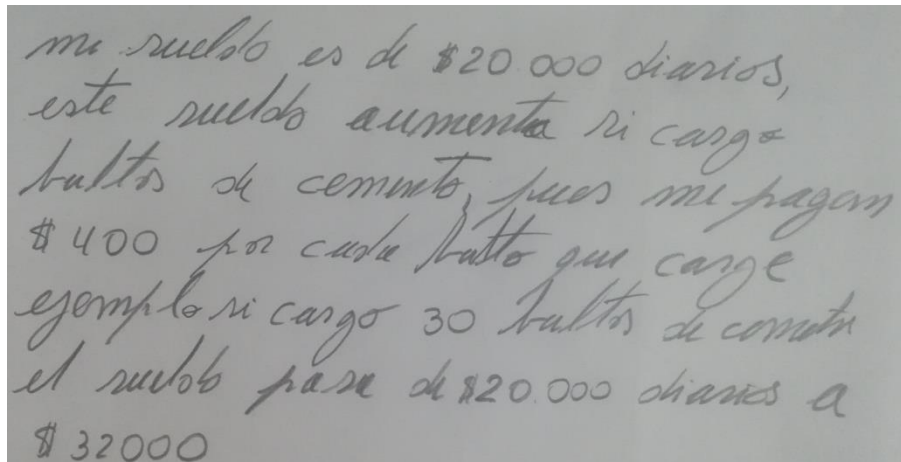 mi sueldo es de $20.000 diarios,
este sueldo aumenta si cargo
bultos de cemento, pues me pagan
$400 por cada bulto que carge
ejemplo si cargo 30 bultos de cemento
el sueldo pasa de $20.000 diarios a
$32000